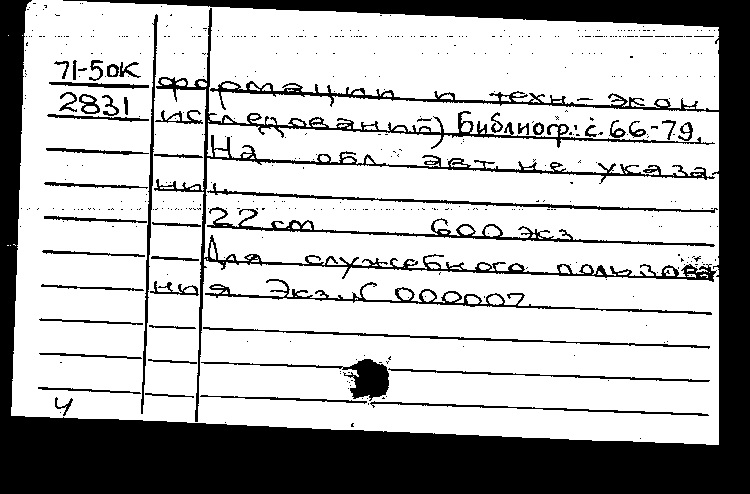 71-5ок формации и техн.-экон.
2831 исследований) Библиогр.: с. 66-79.
На обл. авт. не указа-
ны.
22 см 600 экз
Для служебного пользова-
ния Экз. N 000007
4